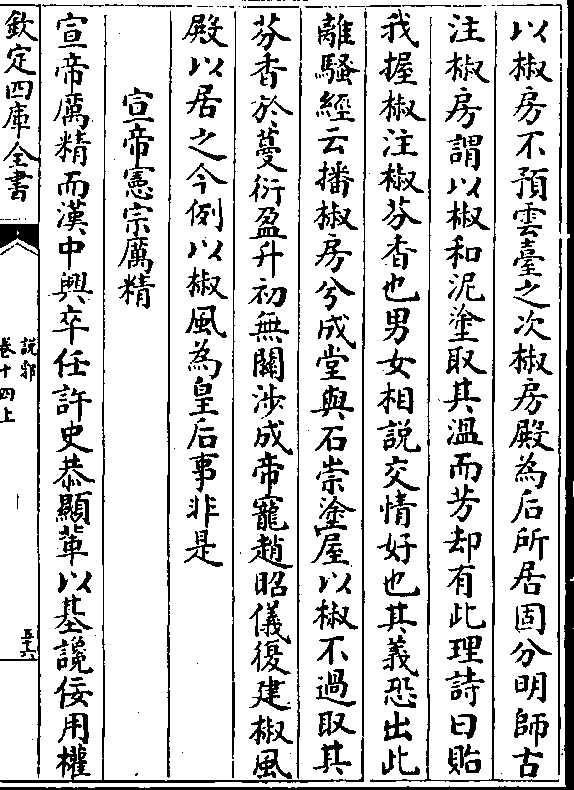 以椒房不預雲臺之次椒房殿為后所居固分明師古
注椒房謂以椒和泥塗取其溫而芳却有此理詩曰貽
我握椒注椒芬香也男女相說交情好也其義恐出此
離騷經云播椒房兮成堂與石崇塗屋以椒不過取其
芬香於蔓衍盈升初無關涉成帝寵趙昭儀復建椒風
殿以居之今例以椒風為皇后事非是
宣帝憲宗厲精
宣帝厲精而漢中興卒任許史恭顯輩以基讒佞用權
欽定四庫全書
說郛
卷十四上
五十六